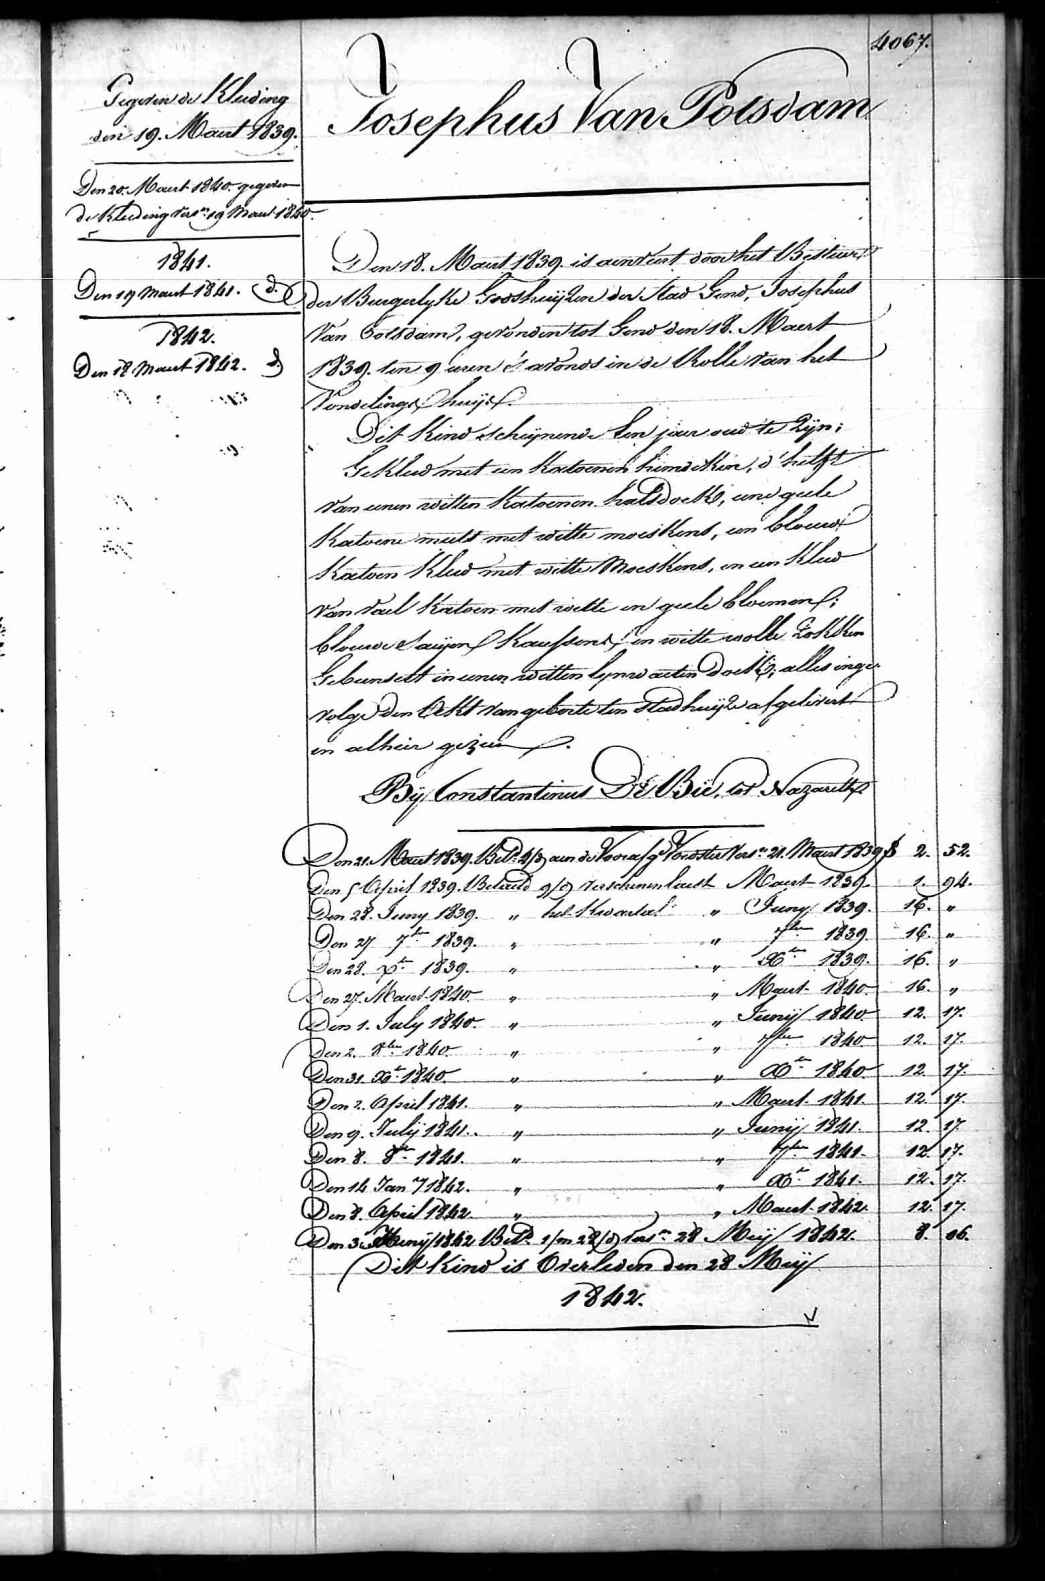 4067.
Josephus Van Potsdam
Gegeven de Kleeding
den 19. Maert 1839.
Den 20. Maert 1840. gegeven
de Kleeding vers.n 19 Maert 1840.
1841.
Den 19 Maert 1841. d.o
1842.
Den 18. Maert 1842. d.
Den 18. Maert 1839. is aenveert door het Bestuer
der Burgerlyke Godshuijzen der Stad Gend, Josephus
Van Potsdam, gevonden tot Gend den 18. Maert
1839. ten 9 uren 's avonds in de Rolle van het
Vondelings huijs.
Dit Kind schijnende een jaer oud te Zijn;
Gekleed met een Katoenen hemdeken, d'helft
van eenen witten Katoenen halsdoek, eene geele
Katoene muts met witte moeskens, een blouw
Katoen Kleed met witte Moeskens, en een Kleed
van vael Katoen met witte en geele bloemen;
blouwe saijen Kaussens en witte wolle Zokken
Gebunselt in eenen witten lynwaeten Doek; alles inge-
volge den Akt van geboorte ten stadhuijze afgelevert
en alhier gezien.
Bij Constantinus De Bie, tot Nazareth
Den 21. Maert 1839. Bet.d 4/d aen de Voorafg.e Voedster vers.n 21. Maert 1839 f 2. 52.
Den 5 April 1839. Betaeld 9/d verschenen laest Maert 1839. 1. 94.
Den 28. Juny 1839. " het Kwartael " Juny 1839. 16. "
Den 27 7ber 1839. " " 7ber 1839. 16. "
Den 28. Xber 1839. " " Xber 1839. 16. "
Den 27. Maert 1840. " " Maert 1840. 16. "
Den 1. July 1840. " " Junij 1840 12. 17.
Den 2. 8ber 1840. " " 7ber 1840 12. 17.
Den 31. Xber 1840. " " Xber 1840 12. 17.
Den 2. April 1841. " " Maert 1841. 12. 17.
Den 9. Julij 1841. " " Junij 1841. 12. 17
Den 8. 8ber 1841. " " 7ber 1841. 12. 17.
Den 14 Jan.y 1842. " " Xber 1841. 12. 17.
Den 8. April 1842. " " Maert 1842. 12. 17.
Den 3. Junij 1842 Bet.d 1/m 28/d vers.n 28 Meij 1842. 8. 06.
Dit Kind is Overleden den 28 Meij
1842.